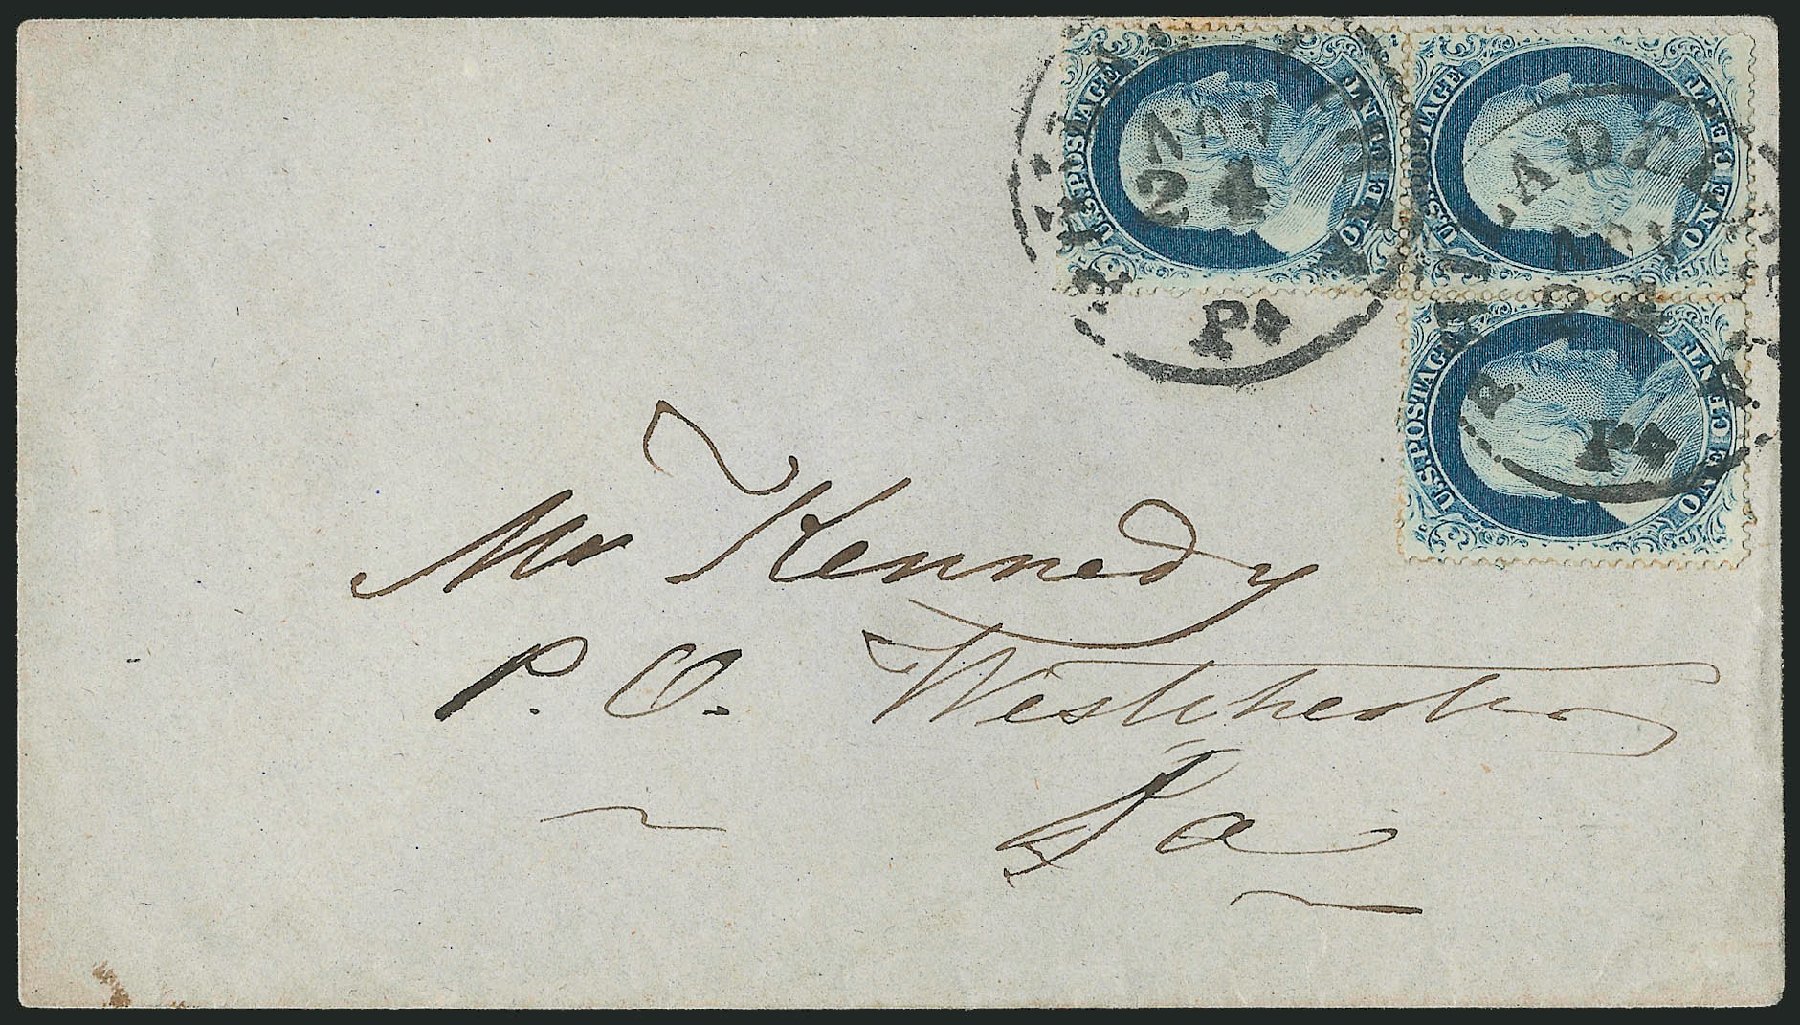 U.S. POSTAGE
ONE CENT
U.S. POSTAGE
ONE CENT
U.S. POSTAGE
ONE CENT
NOV
24
Pa
NOV
24
Pa
Mr Kennedy
P. O. Westchester
Pa